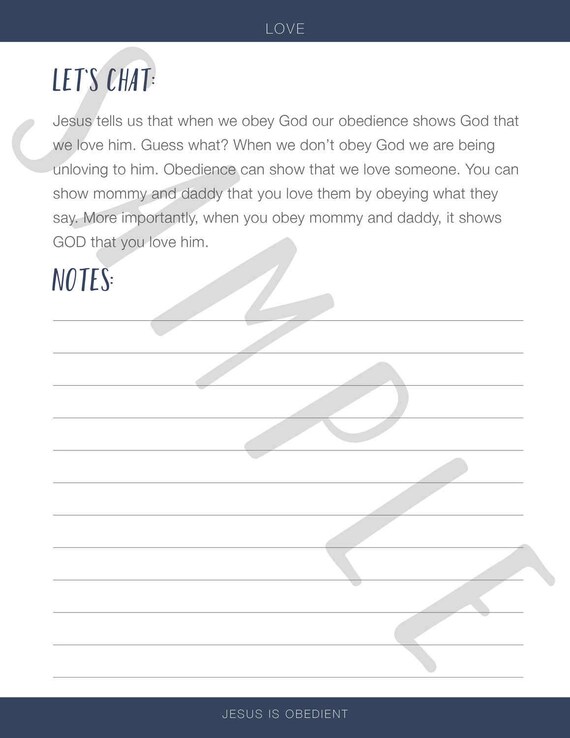 LOVE
LET'S CHAT:
Jesus tells us that when we obey God our obedience shows God that
we love him. Guess what? When we don't obey God we are being
unloving to him. Obedience can show that we love someone. You can
show mommy and daddy that you love them by obeying what they
say. More importantly, when you obey mommy and daddy, it shows
GOD that you love him.
NOTES:
SAMPLE
JESUS IS OBEDIENT